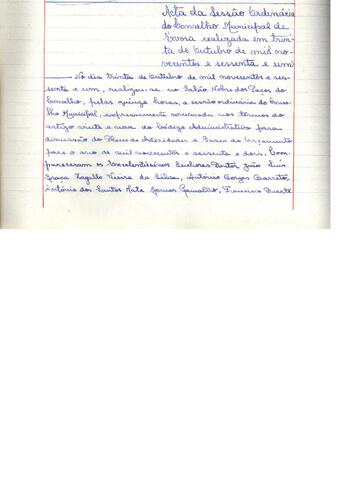 Acta da Sessão Ordinária
do Conselho Municipal de
Évora realizada em trin-
ta de Outubro de mil no-
vecentos e sessenta e um
No dia trinta de Outubro de mil novecentos e ses-
senta e um, realizou-se no Salão Nobre dos Paços do
Concelho, pelas quinze horas, a sessão ordinária do Conse-
lho Municipal, expressamente convocada nos termos do
artigo vinte e nove do Código Administrativo para
discussão do Plano de Actividades e Bases do Orçamento
para o ano de mil novecentos e sessenta e dois. Com-
pareceram os Excelentíssimos Senhores Doutor João Luis
Graça Zagallo Vieira da Silva, António Borges Barreto,
António dos Santos Mata Gomes Ramalho, Francisco Duarte